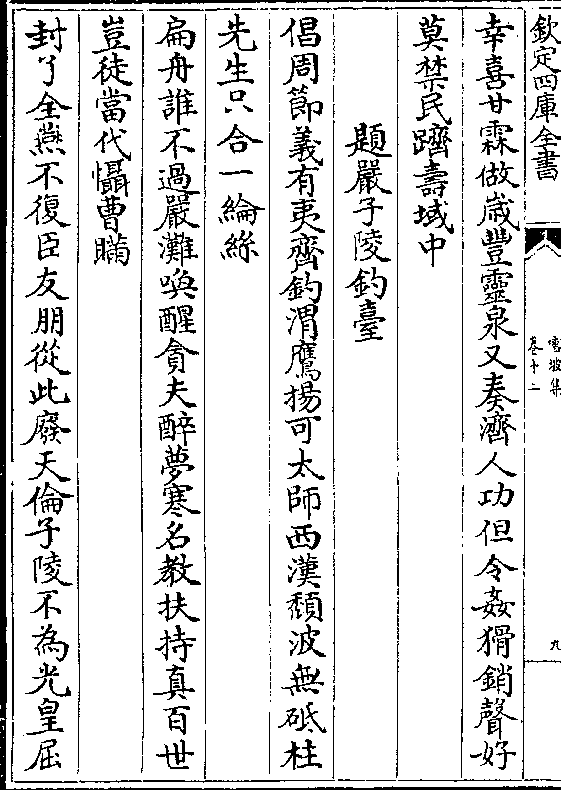 欽定四庫全書
雪坡集
卷十二
九
幸喜甘霖做嵗豐靈泉又奏濟人功但令姦猾銷聲好
莫禁民躋壽域中
題嚴子陵釣臺
倡周節義有夷齊釣渭鷹揚可太師西漢頽波無砥柱
先生只合一綸絲
扁舟誰不過嚴灘喚醒貪夫醉夢寒名教扶持真百世
豈徒當代懾曹瞞
封了全燕不復臣友朋從此廢天倫子陵不為光皇屈